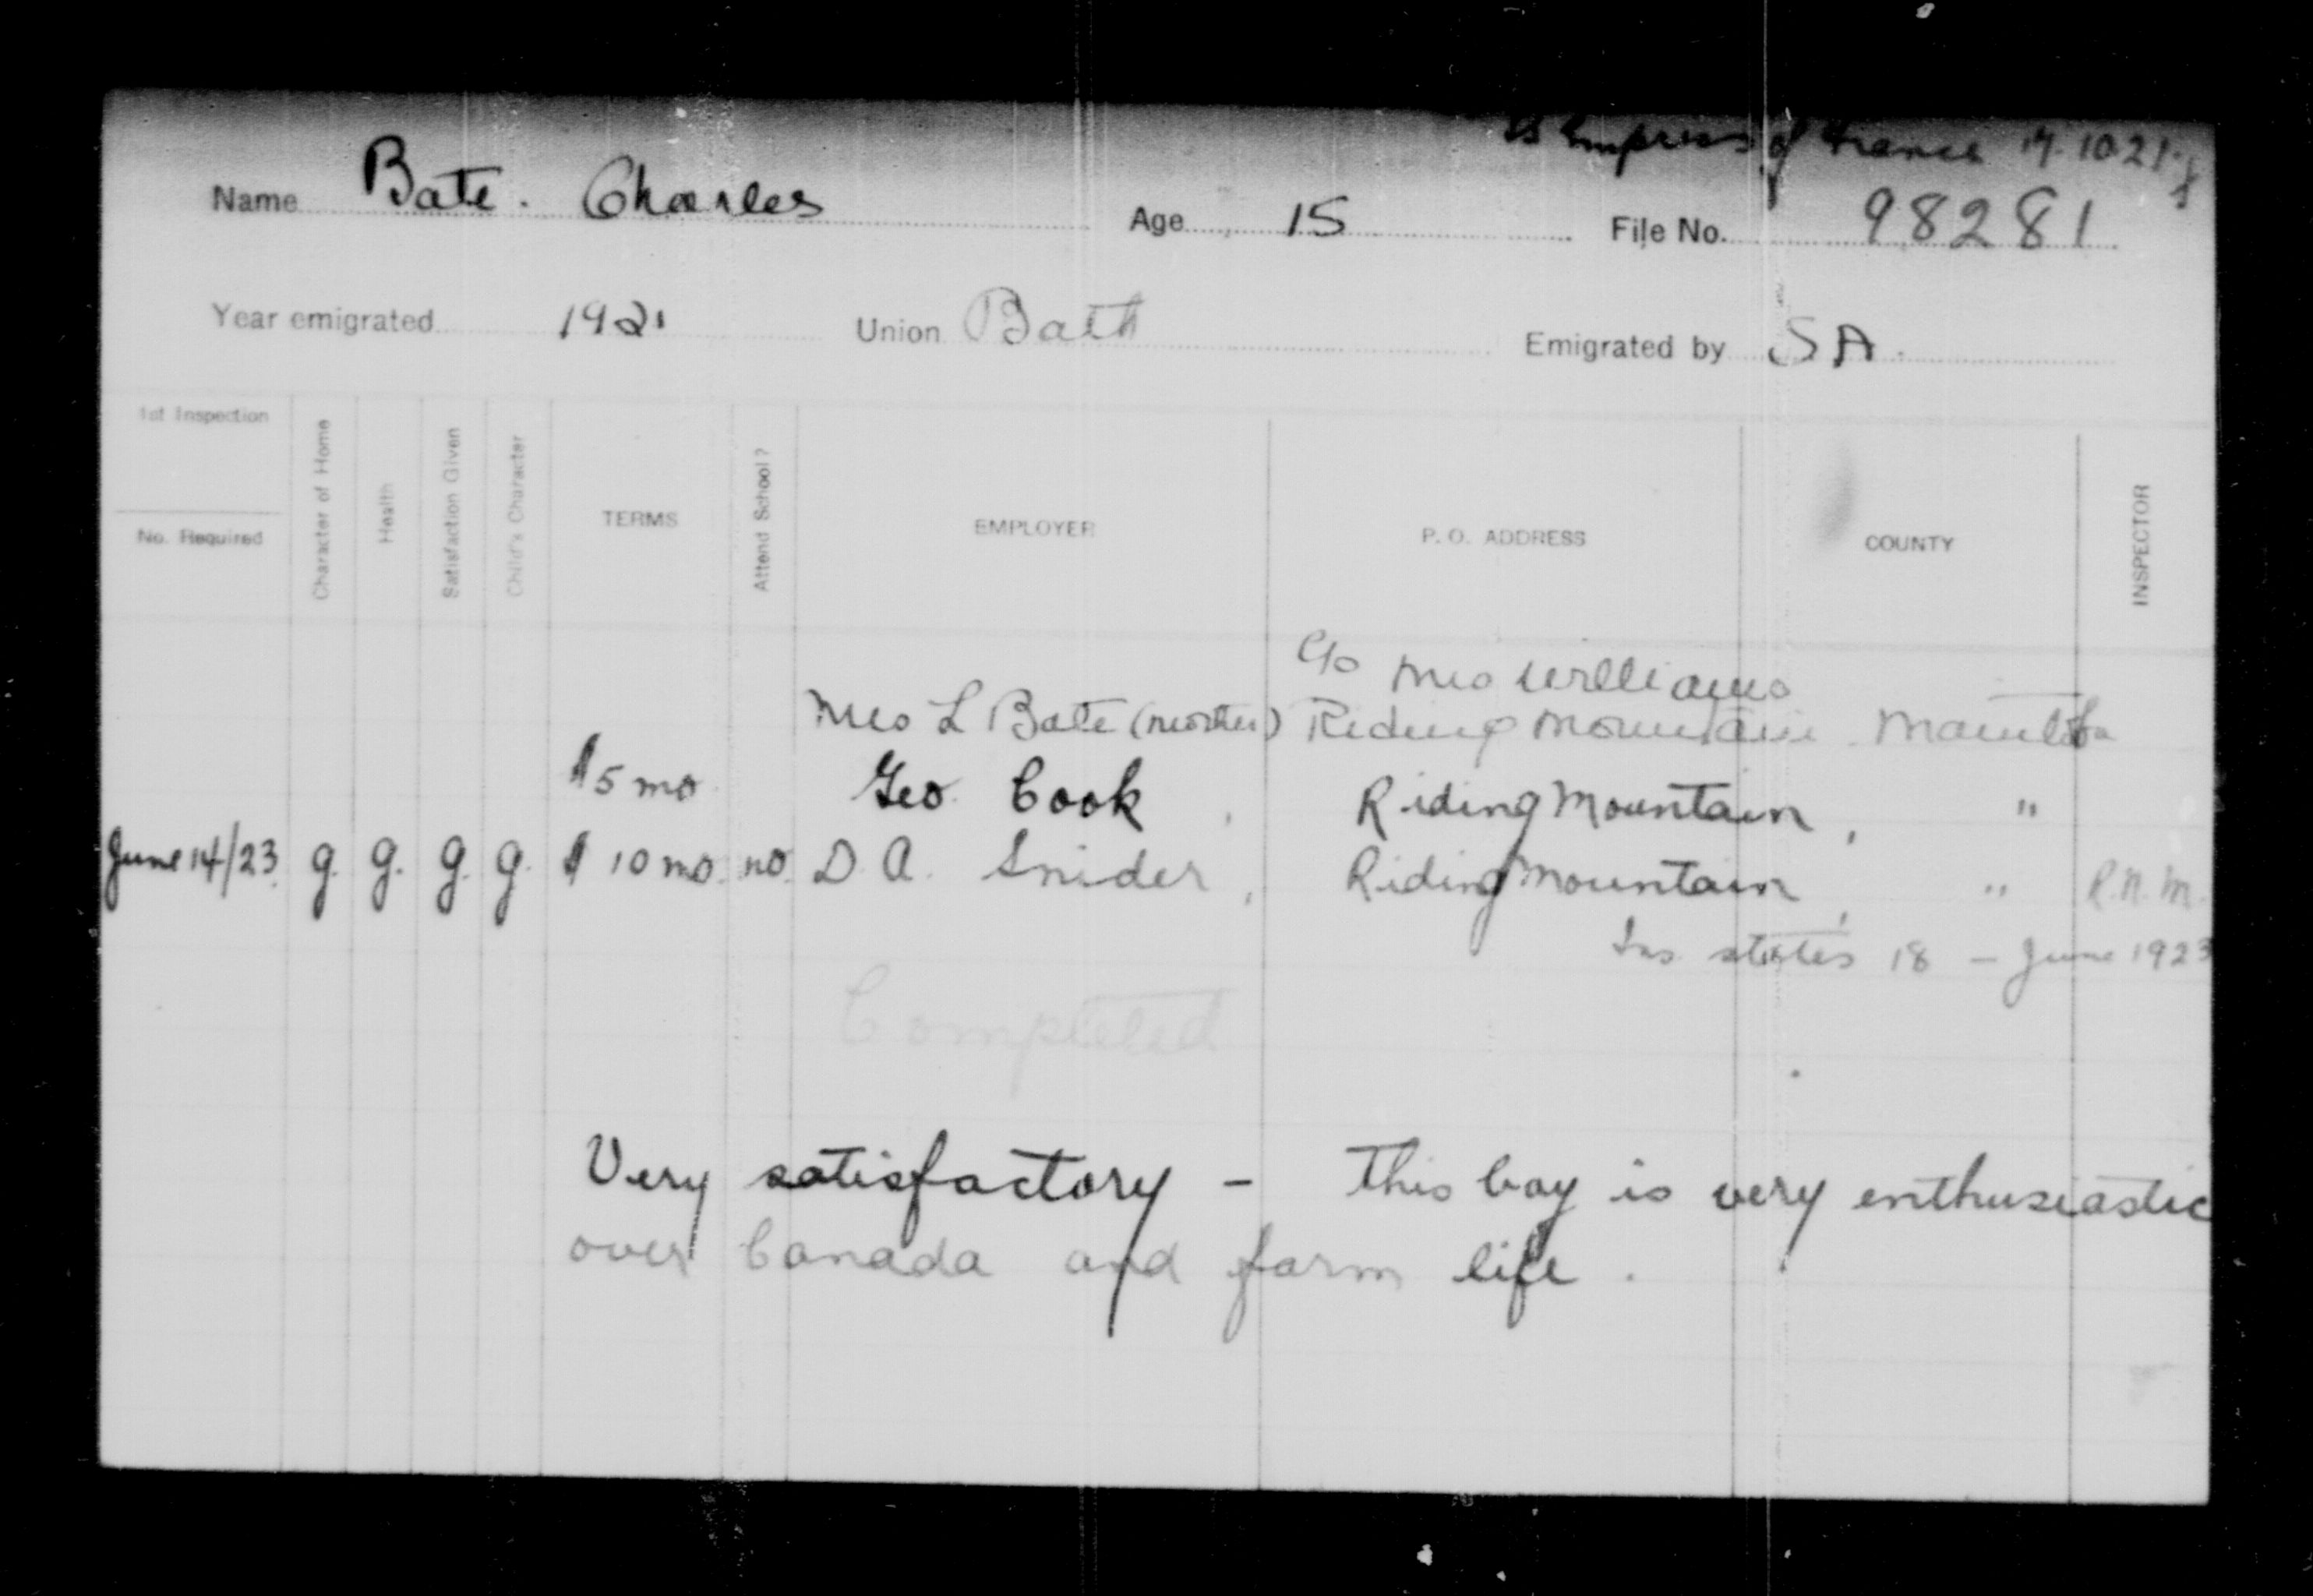 SS Empress of France 14.10.21
Name Bate. Charles Age 15 File No. 98281
Year emigrated 1921 Union Bath Emigrated by SA.
1st Inspection
No. Required
Character of Home
Health
Satisfaction Given
Child's Character
TERMS
Attend School?
EMPLOYER
P. O. ADDRESS
COUNTY
INSPECTOR
c/o Mrs Williams
Mrs L Bate (mother) Riding Mountain Manitoba
$5 mo. Geo. Cook, Riding Mountain, "
June 14/23. g. g. g. g. $ 10 mo. no. D. A. Snider, Riding Mountain, " R.N.M.
Ins. states 18 - June 1923
Completed
Very satisfactory - This boy is very enthusiastic
over Canada and farm life.